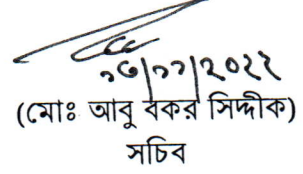 ১৩/১১/২০২২
(মোঃ আবু বকর সিদ্দীক)
সচিব